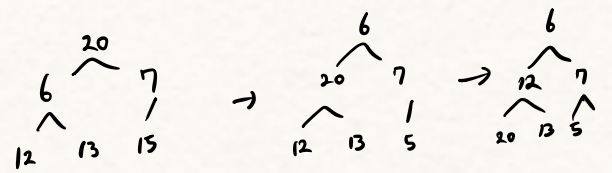 20
6 7
12 13 15
→
6
20 7
12 13 5
→
6
12 7
20 13 5